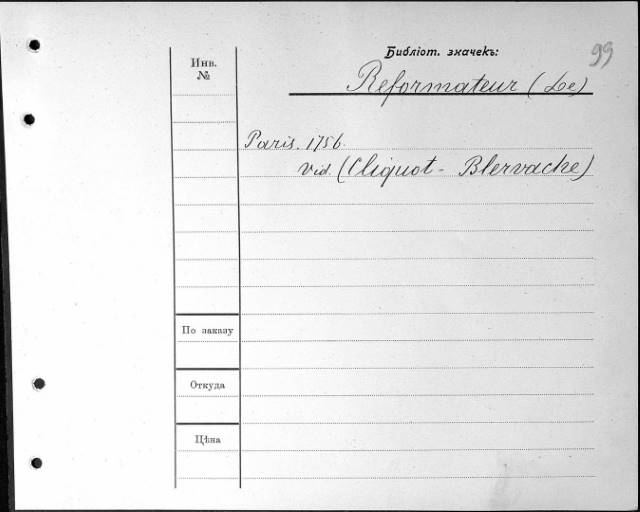 Библіот. значекъ:
99
Инв. №
Reformateur (Le)
Paris. 1756.
vid. (Cliquot - Blervache)
По заказу
Откуда
Цѣна